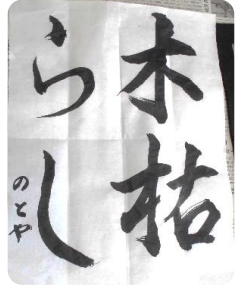 木枯
らし
のとや